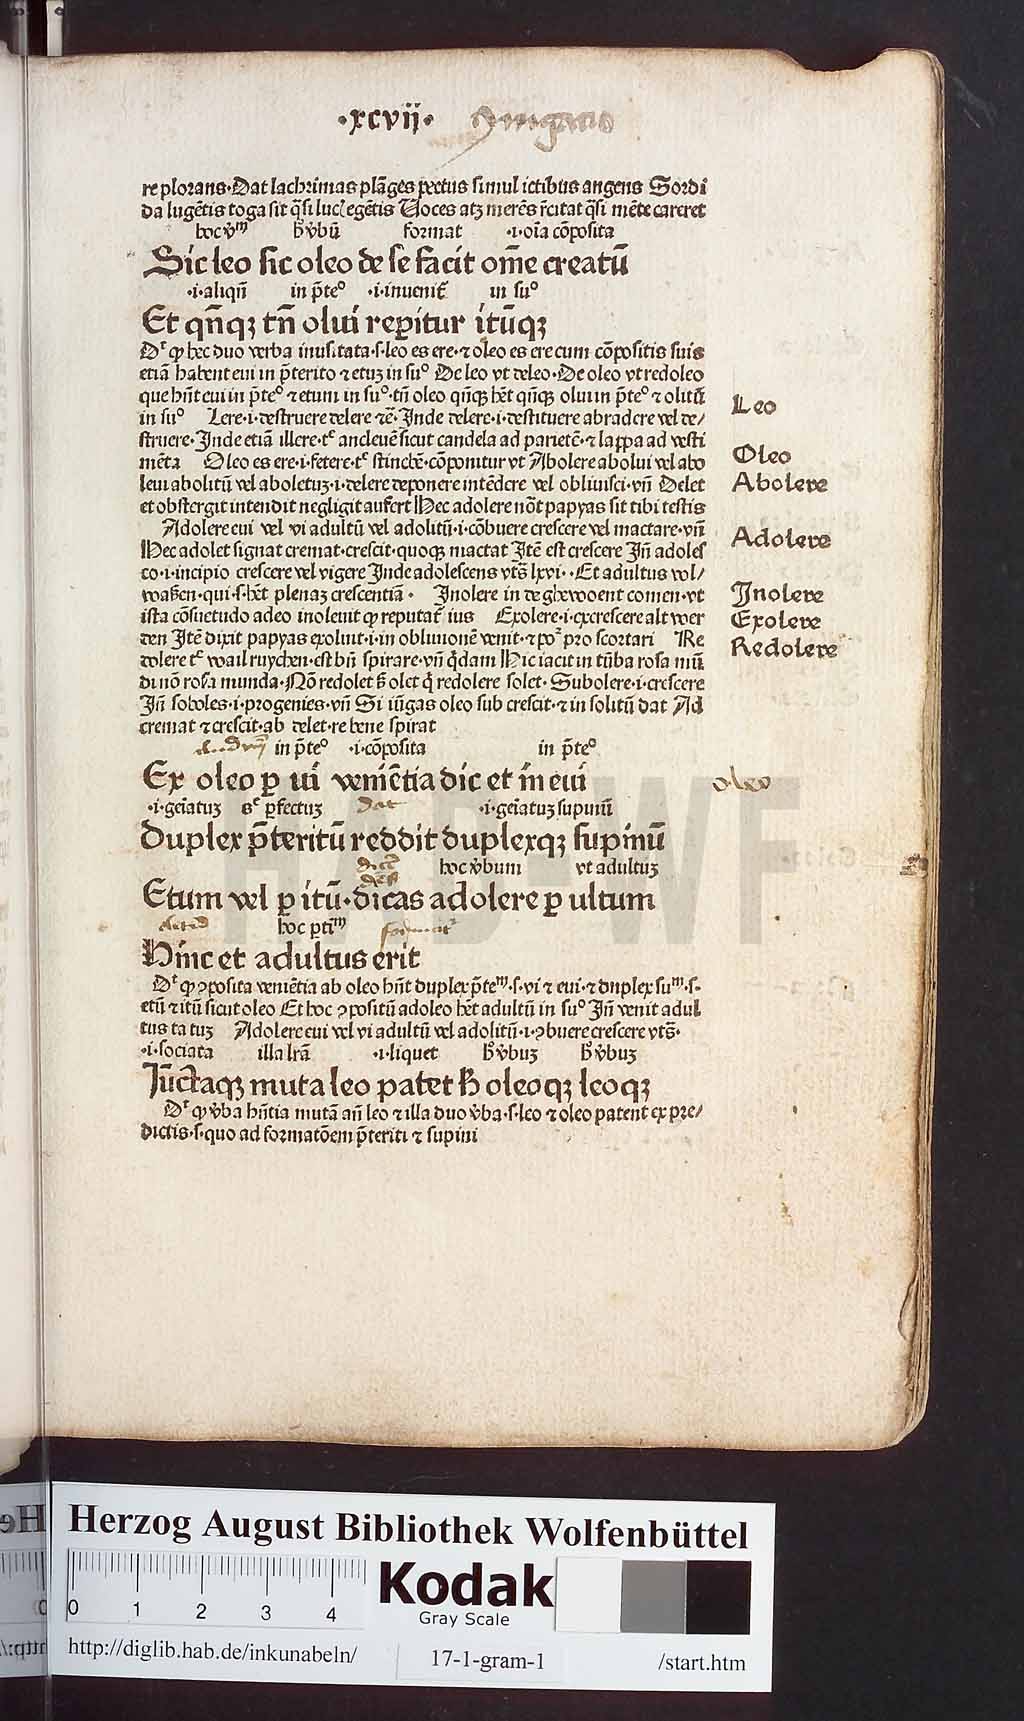 ·xcvij·
re plorans·Dat lachrimas plāges pectus simul ictibus angens Sordi
da lugētis toga sit q̄si lucꝫ egētis Uoces atꝫ merēs r̄citat q̄si mēte careret
hoc v̄ᵐ h̄ v̄bū format ·i·oīa cōposita
Sic leo sic oleo de se facit om̄e creatū
·i·aliqn̄ in p̄teᵒ ·i·inuenit᷑ in suᵒ
Et qn̄qꝫ tn̄ olui reꝑitur itūqꝫ
Dʳ ꝙ hec duo verba inusitata·s·leo es ere·⁊ oleo es ere cum cōpositis suis
etiā habent eui in p̄terito ⁊ etuꝫ in suᵒ De leo vt deleo·De oleo vt redoleo
que hn̄t eui in p̄teᵒ ⁊ etum in suᵒ·tn̄ oleo qn̄qꝫ hēt qn̄qꝫ olui in p̄teᵒ ⁊ olitū
in suᵒ Lere·i·destruere delere ⁊c̄·Inde delere·i·destituere abradere vel de/
struere·Inde etiā illere·tᶜ ancleuē sicut candela ad parietē·⁊ lappa ad vesti
mēta Oleo es ere·i·fetere·tᶜ stinckē·cōponitur vt Abolere abolui vel abo
leui abolitū vel aboletuꝫ·i·delere deponere intēdere vel obliuisci·vn̄ Delet
et obstergit intendit negligit aufert Hec adolere nōt papyas sit tibi testis
Adolere eui vel vi adultū vel adolitū·i·cōbuere crescere vel mactare·vn̄
Hec adolet signat cremat·crescit·quoqꝫ mactat Itē est crescere In̄ adoles
co·i·incipio crescere vel vigere Inde adolescens vtꝭ lxvi··Et adultus vol/
waßen·qui·s·hēt plenaꝫ crescentiā· Inolere in de ghewooent comen·vt
ista cōsuetudo adeo inoleuit ꝙ reputat᷑ ius Exolere·i·excrescere alt wer
den Itē dixit papyas exoluit·i·in obliuionē venit·⁊ poʳ pro scortari Re
dolere tᶜ wail ruychen·est bn̄ spirare·vn̄ q̄dam Hic iacit in tūba rosa mū
di nō rosa munda·Nō redolet sꝫ olet q̄ redolere solet·Subolere·i·crescere
In̄ soboles·i·progenies·vn̄ Si iūgas oleo sub crescit·⁊ in solitū dat Ad
cremat ⁊ crescit·ab delet·re bene spirat
in p̄teᵒ ·i·cōposita in p̄teᵒ
Ex oleo ꝑ ui veniētia dic et in eui
oleo
·i·geīatuꝫ sᶜ ꝑfectuꝫ dat ·i·geīatuꝫ supinū
Duplex p̄teritū reddit duplexqꝫ supinū
hoc v̄bum vt adultuꝫ
Etum vel ꝑ itū·dicas adolere ꝑ ultum
hoc ꝑtiᵐ format᷑
Hinc et adultus erit
Dʳ ꝙ ꝯposita veniētia ab oleo hn̄t duplex p̄teᵐ·s·vi ⁊ eui·⁊ duplex suᵐ·s·
etū ⁊ itū sicut oleo Et hoc ꝯpositū adoleo hēt adultū in suᵒ In̄ venit adul
tus ta tuꝫ Adolere eui vel vi adultū vel adolitū·i·ꝯbuere crescere vtꝭ·
·i·sociata illa lr̄a ·i·liquet h̄ v̄buꝫ h̄ v̄buꝫ
Iūctaqꝫ muta leo patet h̄ oleoqꝫ leoqꝫ
Dʳ ꝙ v̄ba hn̄tia mutā an̄ leo ⁊ illa duo v̄ba·s·leo ⁊ oleo patent ex pre/
dictis·s·quo ad formatōem p̄teriti ⁊ supini
Leo
Oleo
Abolere
Adolere
Inolere
Exolere
Redolere
HAB-WF
Herzog August Bibliothek Wolfenbüttel
0 1 2 3 4
Kodak
Gray Scale
http://diglib.hab.de/inkunabeln/ 17-1-gram-1 /start.htm